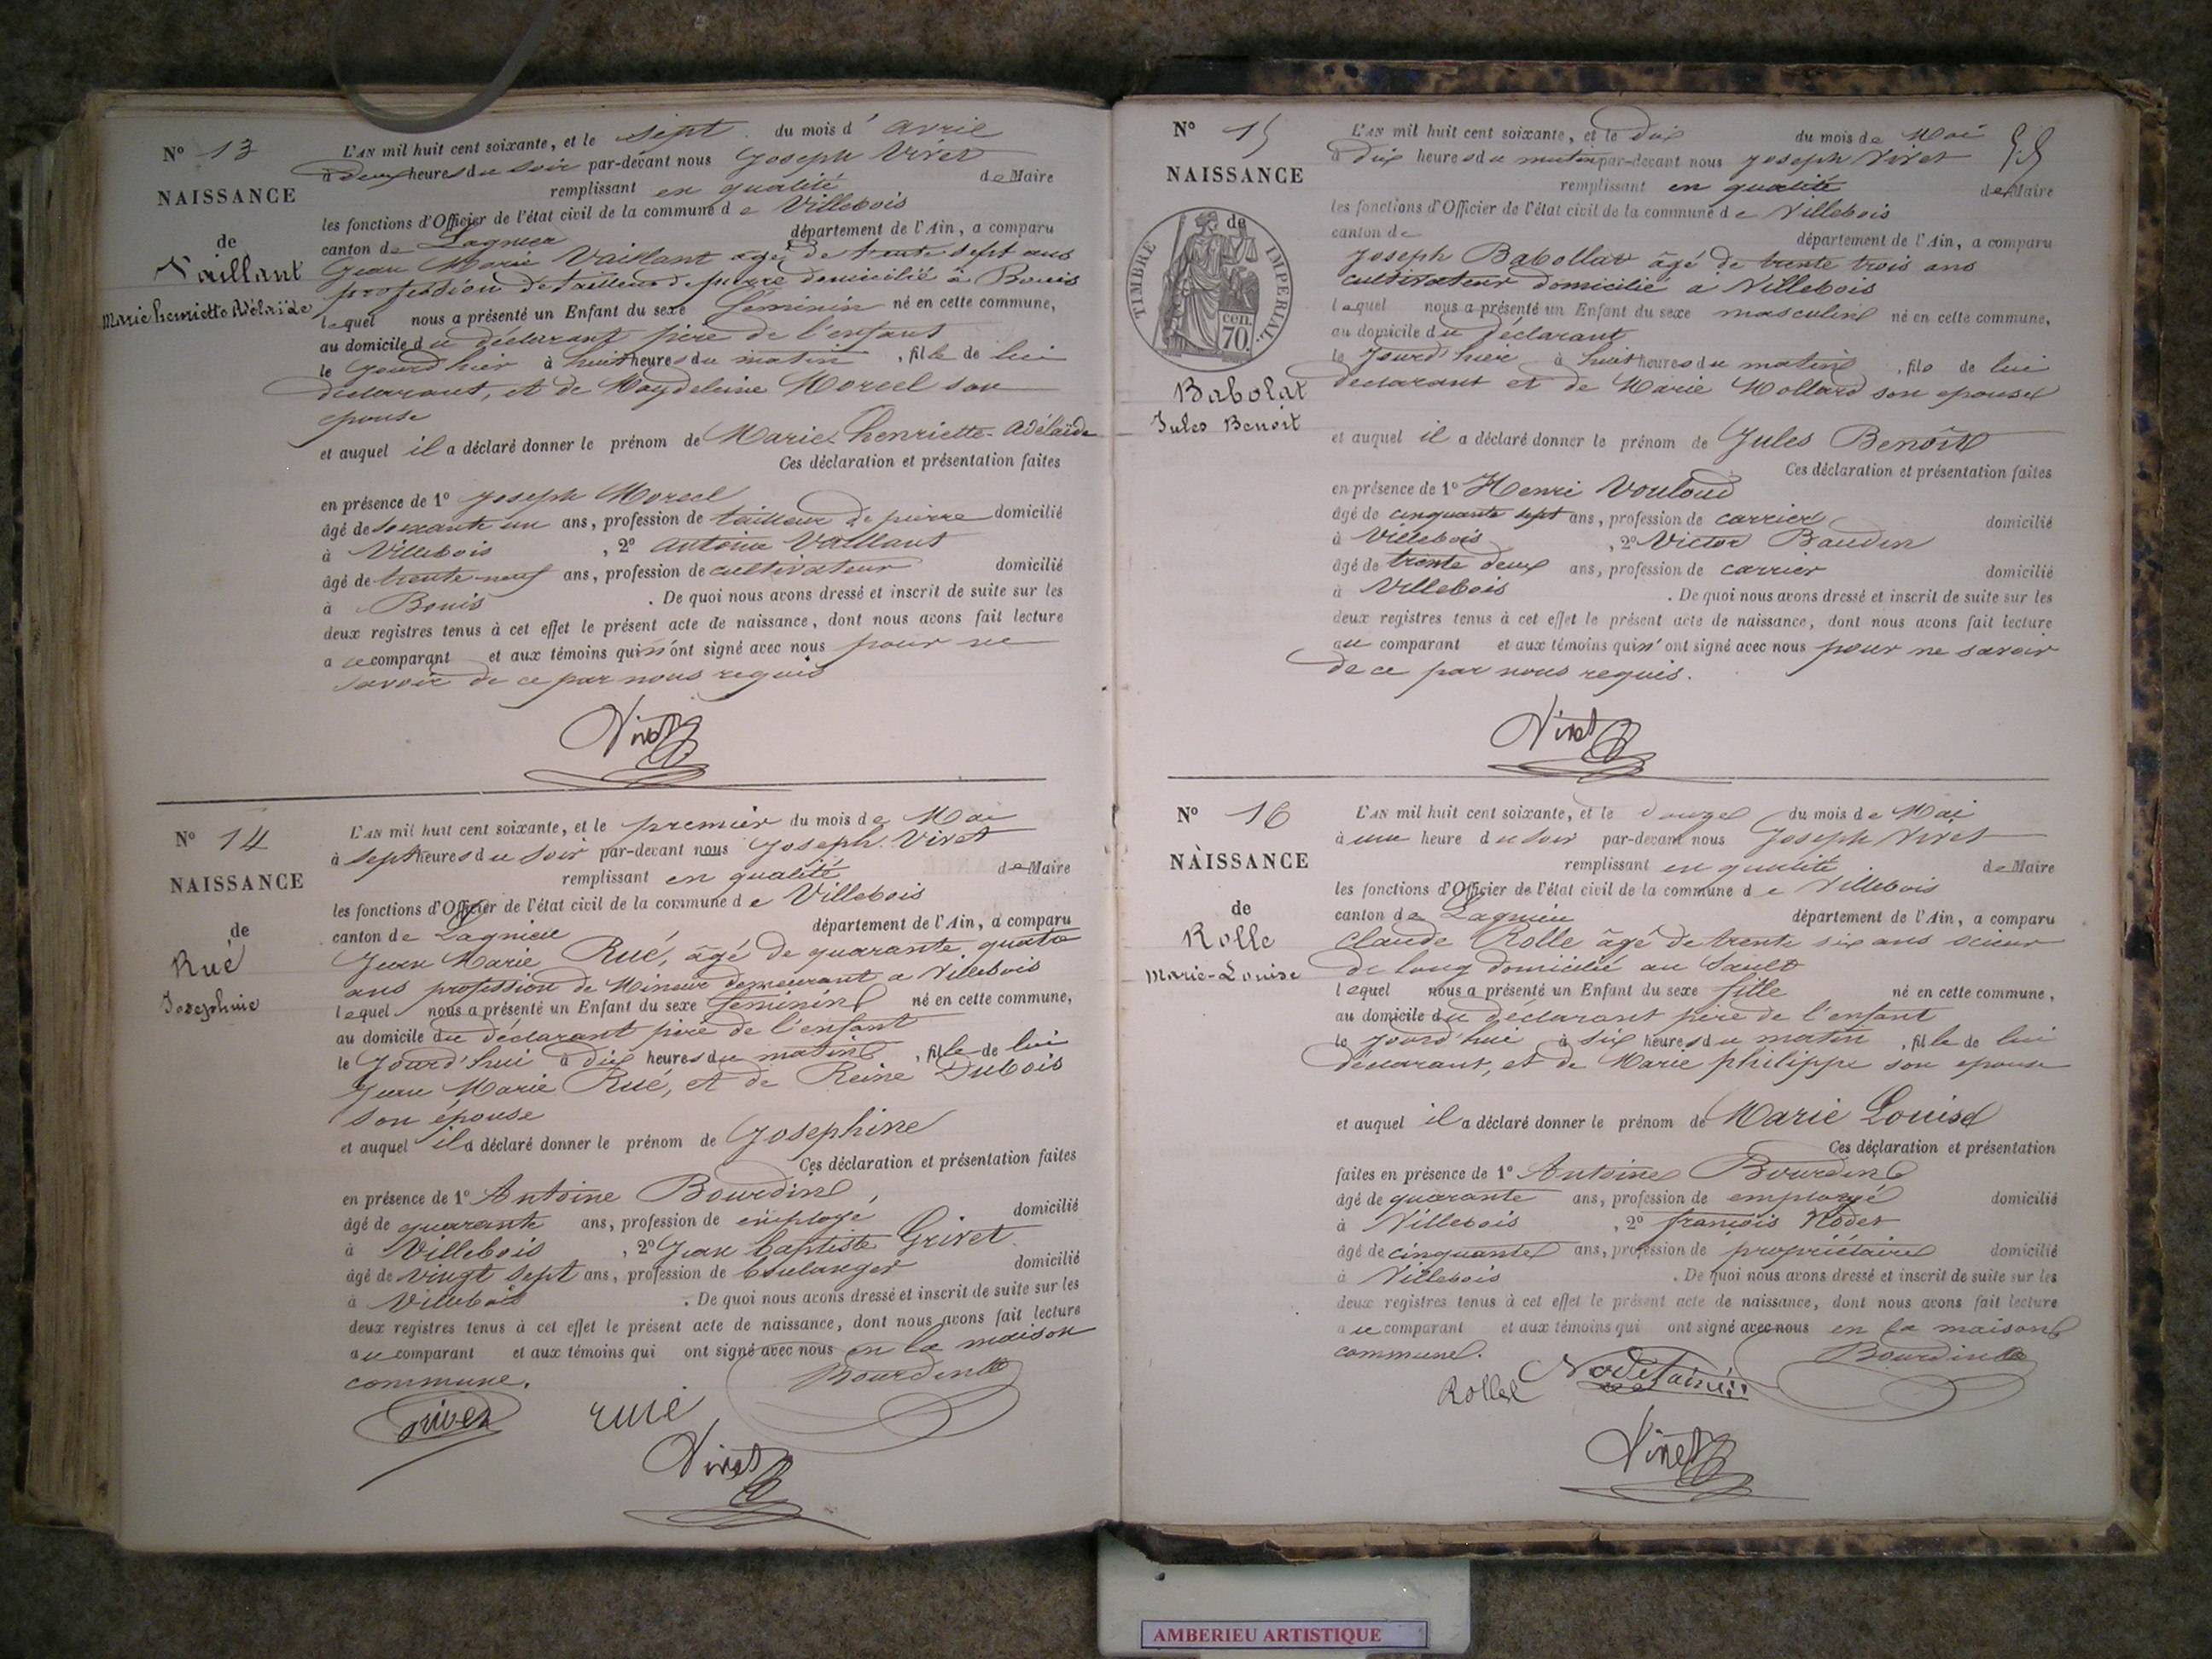 N° 13
NAISSANCE
de
Vaillant
Marie henriette Adélaïde
L'AN mil huit cent soixante, et le sept du mois d' avril
à deux heures du soir par-devant nous Joseph Viret
remplissant en qualité de Maire
les fonctions d'Officier de l'état civil de la commune de Villebois
canton de Lagnieu département de l'Ain, a comparu
Jean Marie Vaillant agé de trente sept ans
profession de tailleur de pierre domicilié à Bouis
lequel nous a présenté un Enfant du sexe féminin né en cette commune,
au domicile du déclarant père de l'enfant
le jourd'hier à huit heures du matin, fille de lui
déclarant, et de Magdeleine Morel son
epouse
et auquel il a déclaré donner le prénom de Marie-henriette-Adélaïde
Ces déclaration et présentation faites
en présence de 1° Joseph Morel
âgé de soixante un ans, profession de tailleur de pierre domicilié
à Villebois, 2° Antoine Vaillant
âgé de trente-neuf ans, profession de cultivateur domicilié
à Bouis. De quoi nous avons dressé et inscrit de suite sur les
deux registres tenus à cet effet le présent acte de naissance, dont nous avons fait lecture
au comparant et aux témoins qui n'ont signé avec nous pour ne
savoir de ce par nous requis
Viret
N° 14
NAISSANCE
de
Rué
Josephine
L'AN mil huit cent soixante, et le premier du mois de Mai
à sept heures du soir par-devant nous Joseph Viret
remplissant en qualité de Maire
les fonctions d'Officier de l'état civil de la commune de Villebois
canton de Lagnieu département de l'Ain, a comparu
Jean Marie Rué, âgé de quarante quatre
ans profession de Mineur demeurant a Villebois
lequel nous a présenté un Enfant du sexe féminin né en cette commune,
au domicile du déclarant père de l'enfant
le Jourd'hui à dix heures du matin, fille de lui
Jean Marie Rué, et de Reine Dubois
son épouse
et auquel il a déclaré donner le prénom de Josephine
Ces déclaration et présentation faites
en présence de 1° Antoine Bourdin
âgé de quarante ans, profession de employé domicilié
à Villebois, 2° Jean baptiste Griret
âgé de vingt sept ans, profession de boulanger domicilié
à Villebois. De quoi nous avons dressé et inscrit de suite sur les
deux registres tenus à cet effet le présent acte de naissance, dont nous avons fait lecture
au comparant et aux témoins qui ont signé avec nous en la maison
commune.
Bourdin
rué
Viret
N° 15
NAISSANCE
de
TIMBRE IMPERIAL
70 cen.
Babolat
Jules Benoit
L'AN mil huit cent soixante, et le dix du mois de Mai
à dix heures du matin par-devant nous Joseph Viret
remplissant en qualité de Maire
les fonctions d'Officier de l'état civil de la commune de Villebois
canton de département de l'Ain, a comparu
Joseph Babollat âgé de trente trois ans
cultivateur domicilié a Villebois
lequel nous a présenté un Enfant du sexe masculin né en cette commune,
au domicile du déclarant
le Jourd'hier à huit heures du matin, fils de lui
déclarant et de Marie Mollard son epouse
et auquel il a déclaré donner le prénom de Jules Benoît
Ces déclaration et présentation faites
en présence de 1° Henri Vouloud
âgé de cinquante sept ans, profession de carrier domicilié
à Villebois, 2° Victor Baudin
âgé de trente deux ans, profession de carrier domicilié
à Villebois. De quoi nous avons dressé et inscrit de suite sur les
deux registres tenus à cet effet le présent acte de naissance, dont nous avons fait lecture
au comparant et aux témoins qui n'ont signé avec nous pour ne savoir
de ce par nous requis.
Viret
N° 16
NAISSANCE
de
Rolle
Marie-Louise
L'AN mil huit cent soixante, et le douze du mois de Mai
à une heure du soir par-devant nous Joseph Viret
remplissant en qualité de Maire
les fonctions d'Officier de l'état civil de la commune de Villebois
canton de Lagnieu département de l'Ain, a comparu
Claude Rolle âgé de trente six ans scieur
de long domicilié au Sault
lequel nous a présenté un Enfant du sexe fille né en cette commune,
au domicile du déclarant père de l'enfant
le jourd'hui à six heures du matin, fille de lui
déclarant, et de Marie philippe son epouse
et auquel il a déclaré donner le prénom de Marie Louise
Ces déclaration et présentation
faites en présence de 1° Antoine Bourdin
âgé de quarante ans, profession de employé domicilié
à Villebois, 2° françois Nodet
âgé de cinquante ans, profession de propriétaire domicilié
à Villebois. De quoi nous avons dressé et inscrit de suite sur les
deux registres tenus à cet effet le présent acte de naissance, dont nous avons fait lecture
au comparant et aux témoins qui ont signé avec nous en la maison
commune.
Bourdin
Rolle
Viret
AMBERIEU ARTISTIQUE